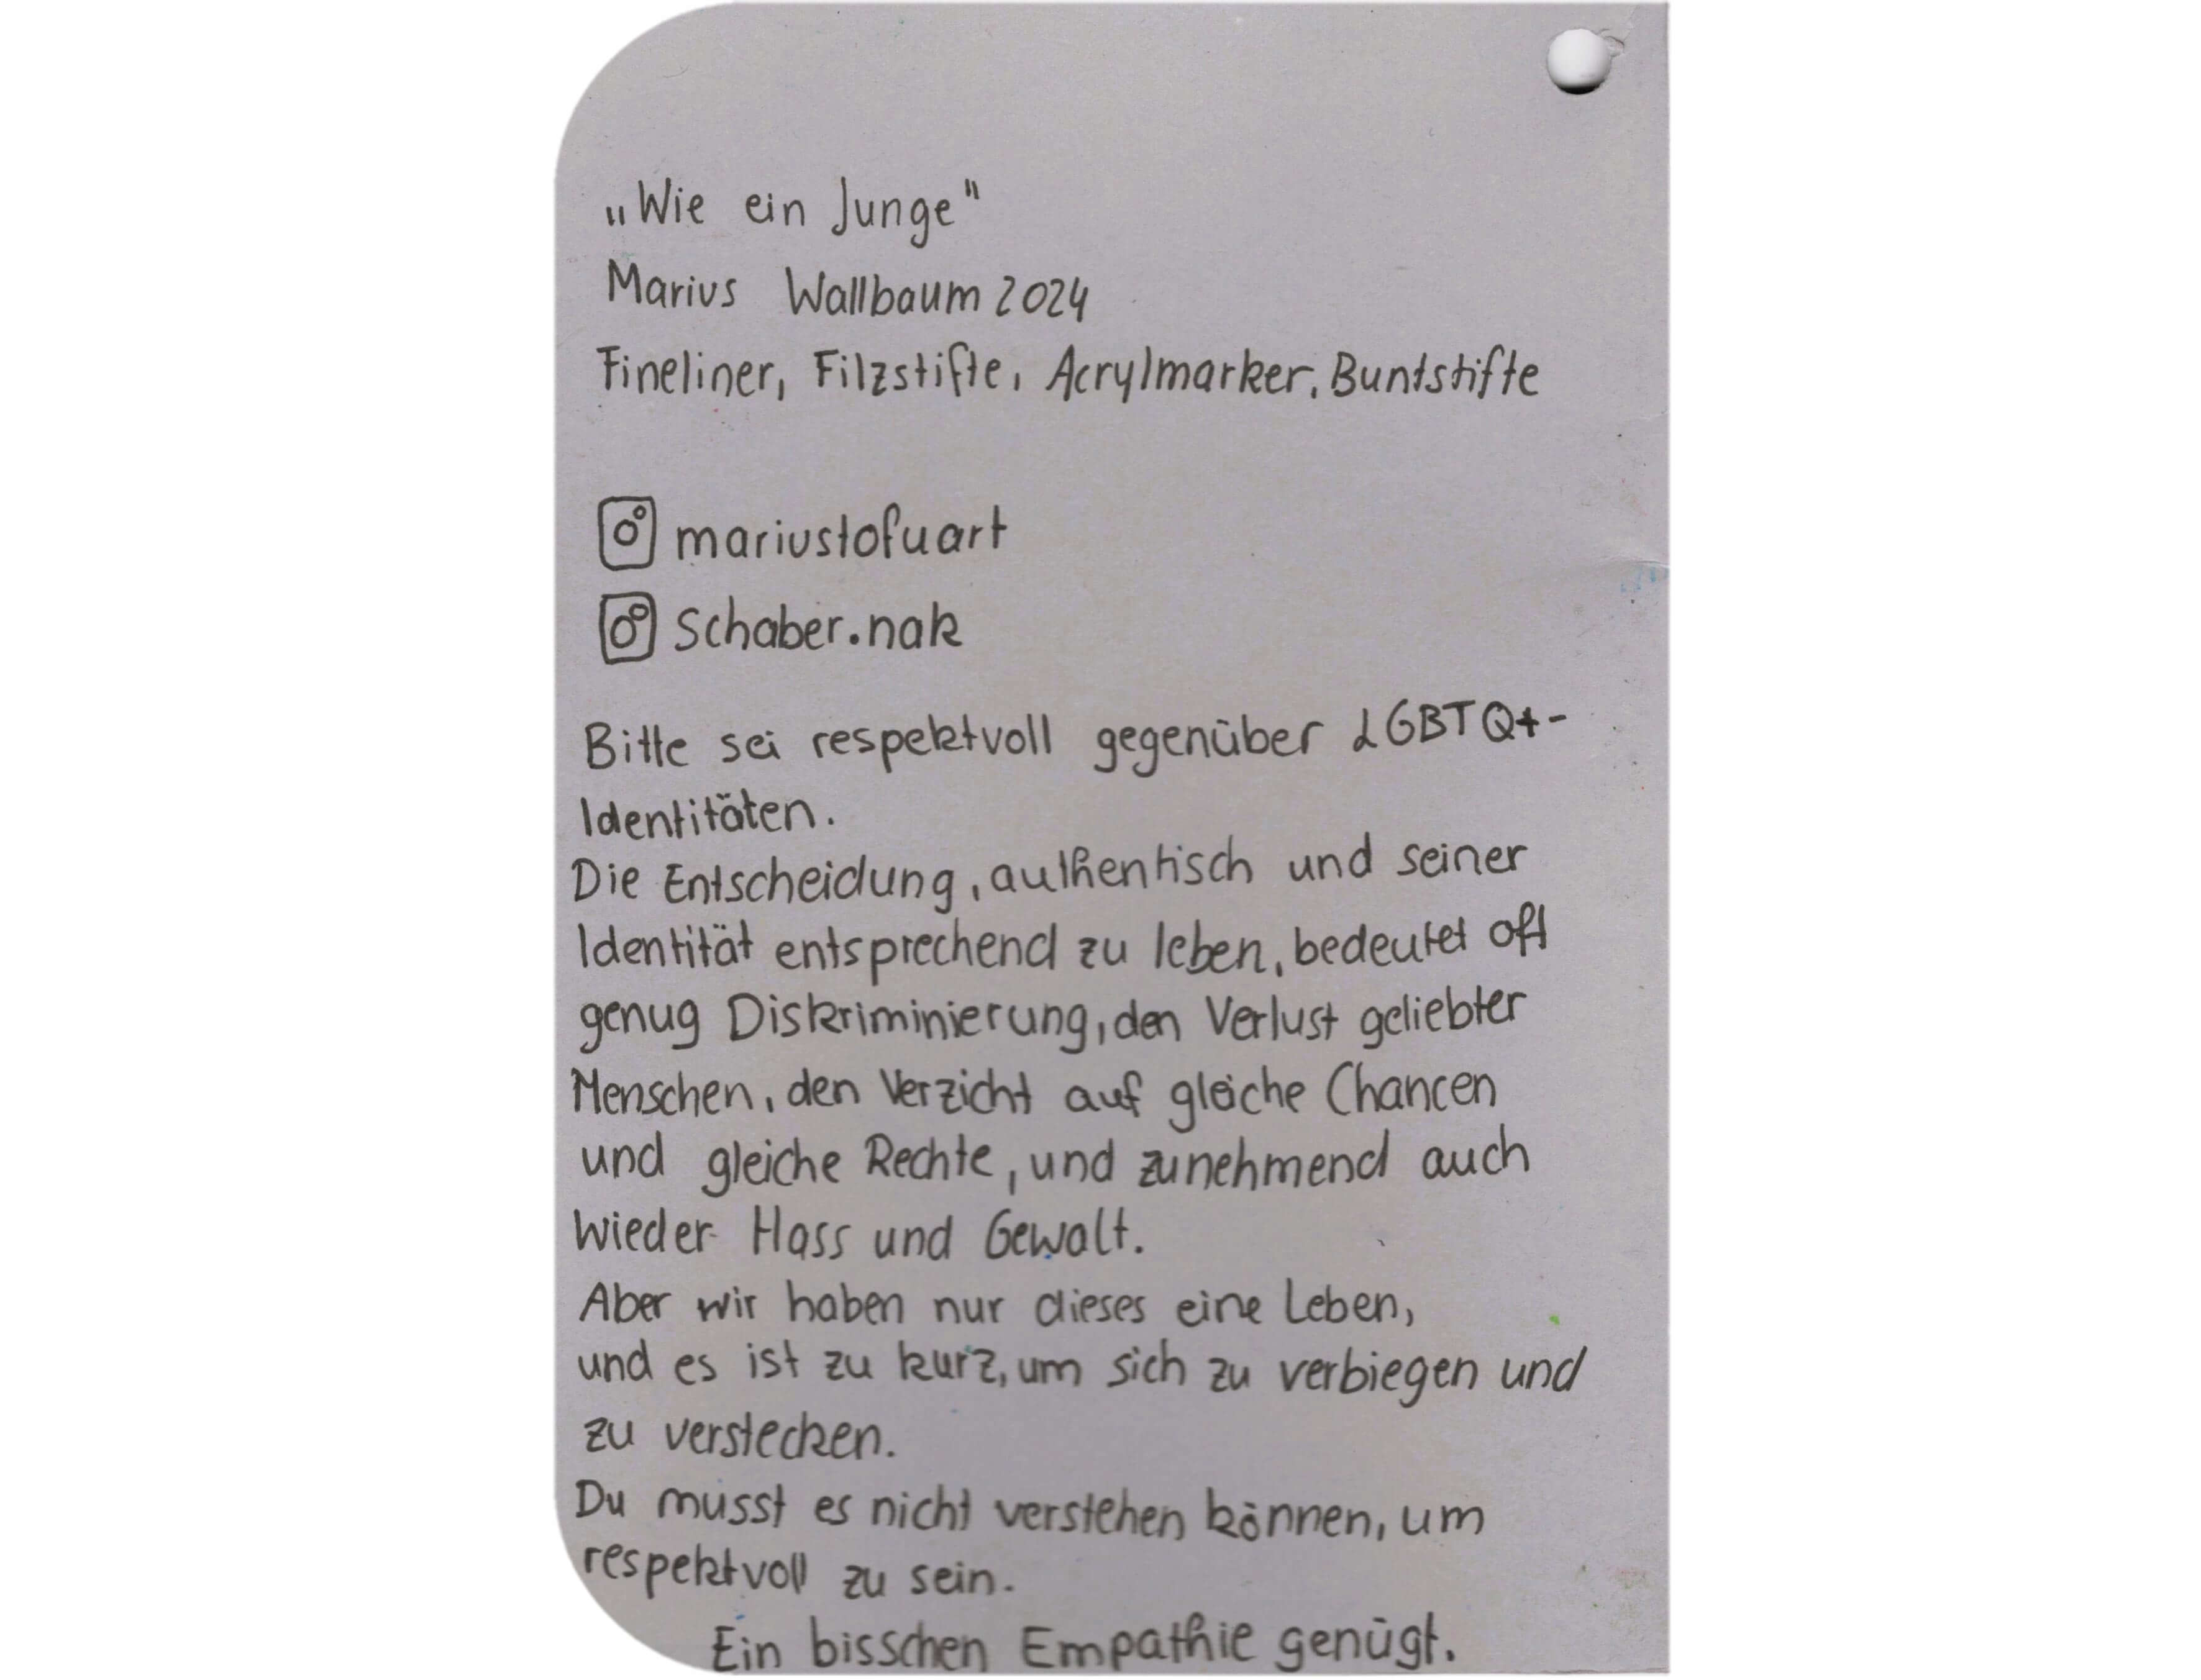 „Wie ein Junge"
Marius Wallbaum 2024
Fineliner, Filzstifte, Acrylmarker, Buntstifte
mariustofuart
schaber.nak
Bitte sei respektvoll gegenüber LGBTQ+-
Identitäten.
Die Entscheidung, authentisch und seiner
Identität entsprechend zu leben, bedeutet oft
genug Diskriminierung, den Verlust geliebter
Menschen, den Verzicht auf gleiche Chancen
und gleiche Rechte, und zunehmend auch
wieder Hass und Gewalt.
Aber wir haben nur dieses eine Leben,
und es ist zu kurz, um sich zu verbiegen und
zu verstecken.
Du musst es nicht verstehen können, um
respektvoll zu sein.
Ein bisschen Empathie genügt.